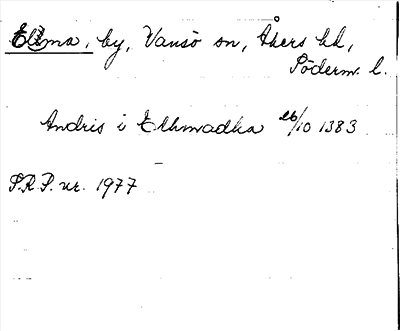 Elsma, by, Vansö sn, Åkers hd,
Söderm. l.
Andris i Elhmadha 26/10 1383
S.R.P. nr. 1977